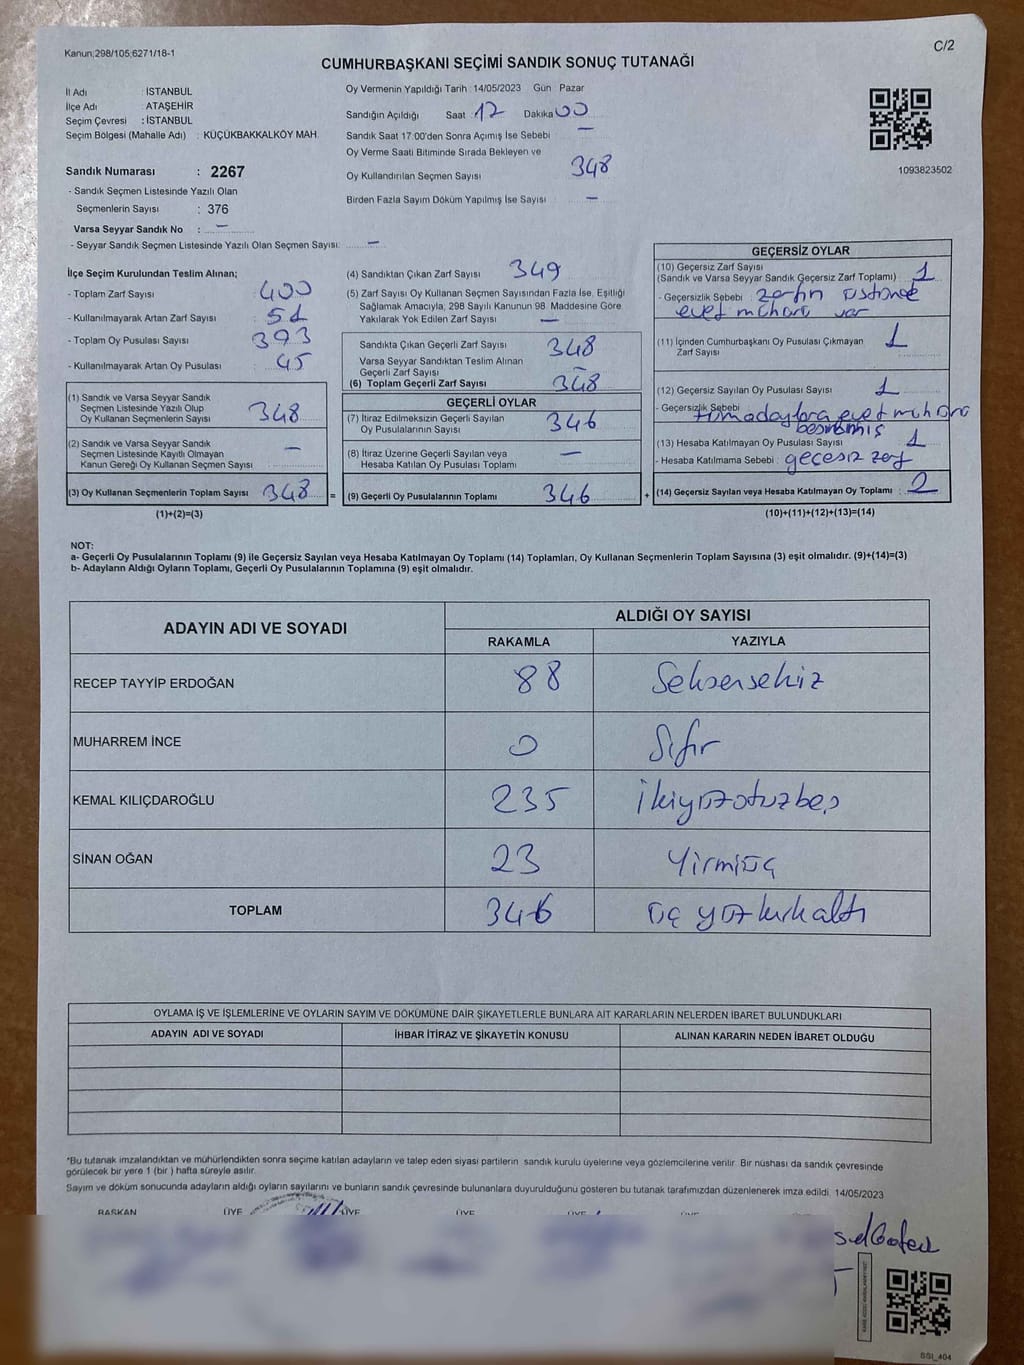 Kanun:298/105;6271/18-1
C/2
CUMHURBAŞKANI SEÇİMİ SANDIK SONUÇ TUTANAĞI
İl Adı : İSTANBUL
İlçe Adı : ATAŞEHİR
Seçim Çevresi : İSTANBUL
Seçim Bölgesi (Mahalle Adı) : KÜÇÜKBAKKALKÖY MAH.
Sandık Numarası : 2267
- Sandık Seçmen Listesinde Yazılı Olan
Seçmenlerin Sayısı : 376
Varsa Seyyar Sandık No : —
- Seyyar Sandık Seçmen Listesinde Yazılı Olan Seçmen Sayısı: —
Oy Vermenin Yapıldığı Tarih 14/05/2023 Gün Pazar
Sandığın Açıldığı Saat 17 Dakika 00
Sandık Saat 17:00'den Sonra Açımış İse Sebebi —
Oy Verme Saati Bitiminde Sırada Bekleyen ve
Oy Kullandırılan Seçmen Sayısı 348
Birden Fazla Sayım Döküm Yapılmış İse Sayısı —
1093823502
İlçe Seçim Kurulundan Teslim Alınan;
- Toplam Zarf Sayısı : 400
- Kullanılmayarak Artan Zarf Sayısı : 51
- Toplam Oy Pusulası Sayısı : 393
- Kullanılmayarak Artan Oy Pusulası : 45
(1) Sandık ve Varsa Seyyar Sandık
Seçmen Listesinde Yazılı Olup
Oy Kullanan Seçmenlerin Sayısı 348
(2) Sandık ve Varsa Seyyar Sandık
Seçmen Listesinde Kayıtlı Olmayan
Kanun Gereği Oy Kullanan Seçmen Sayısı —
(3) Oy Kullanan Seçmenlerin Toplam Sayısı 348 =
(1)+(2)=(3)
(4) Sandıktan Çıkan Zarf Sayısı 349
(5) Zarf Sayısı Oy Kullanan Seçmen Sayısından Fazla İse, Eşitliği
Sağlamak Amacıyla; 298 Sayılı Kanunun 98. Maddesine Göre
Yakılarak Yok Edilen Zarf Sayısı —
Sandıkta Çıkan Geçerli Zarf Sayısı 348
Varsa Seyyar Sandıktan Teslim Alınan
Geçerli Zarf Sayısı —
(6) Toplam Geçerli Zarf Sayısı 348
GEÇERLİ OYLAR
(7) İtiraz Edilmeksizin Geçerli Sayılan
Oy Pusulalarının Sayısı 346
(8) İtiraz Üzerine Geçerli Sayılan veya
Hesaba Katılan Oy Pusulası Toplamı —
(9) Geçerli Oy Pusulalarının Toplamı 346 +
GEÇERSİZ OYLAR
(10) Geçersiz Zarf Sayısı
(Sandık ve Varsa Seyyar Sandık Geçersiz Zarf Toplamı) 1
- Geçersizlik Sebebi : zarfın üstünde
evet mührü var
(11) İçinden Cumhurbaşkanı Oy Pusulası Çıkmayan
Zarf Sayısı 1
(12) Geçersiz Sayılan Oy Pusulası Sayısı 1
- Geçersizlik Sebebi
tüm adaylara evet mührü
basılmış
(13) Hesaba Katılmayan Oy Pusulası Sayısı 1
- Hesaba Katılmama Sebebi : geçesiz zarf
(14) Geçersiz Sayılan veya Hesaba Katılmayan Oy Toplamı : 2
(10)+(11)+(12)+(13)=(14)
NOT:
a- Geçerli Oy Pusulalarının Toplamı (9) ile Geçersiz Sayılan veya Hesaba Katılmayan Oy Toplamı (14) Toplamları, Oy Kullanan Seçmenlerin Toplam Sayısına (3) eşit olmalıdır. (9)+(14)=(3)
b- Adayların Aldığı Oyların Toplamı, Geçerli Oy Pusulalarının Toplamına (9) eşit olmalıdır.
ADAYIN ADI VE SOYADI
ALDIĞI OY SAYISI
RAKAMLA YAZIYLA
RECEP TAYYİP ERDOĞAN 88 Seksensekiz
MUHARREM İNCE 0 Sıfır
KEMAL KILIÇDAROĞLU 235 ikiyüzotuzbeş
SİNAN OĞAN 23 Yirmiüç
TOPLAM 346 üç yüz kırkaltı
OYLAMA İŞ VE İŞLEMLERİNE VE OYLARIN SAYIM VE DÖKÜMÜNE DAİR ŞİKAYETLERLE BUNLARA AİT KARARLARIN NELERDEN İBARET BULUNDUKLARI
ADAYIN ADI VE SOYADI İHBAR İTİRAZ VE ŞİKAYETİN KONUSU ALINAN KARARIN NEDEN İBARET OLDUĞU
*Bu tutanak imzalandıktan ve mühürlendikten sonra seçime katılan adayların ve talep eden siyasi partilerin sandık kurulu üyelerine veya gözlemcilerine verilir. Bir nüshası da sandık çevresinde
görülecek bir yere 1 (bir ) hafta süreyle asılır.
Sayım ve döküm sonucunda adayların aldığı oyların sayılarını ve bunların sandık çevresinde bulunanlara duyurulduğunu gösteren bu tutanak tarafımızdan düzenlenerek imza edildi. 14/05/2023
BAŞKAN ÜYE ÜYE ÜYE ÜYE ÜYE
SSI_404